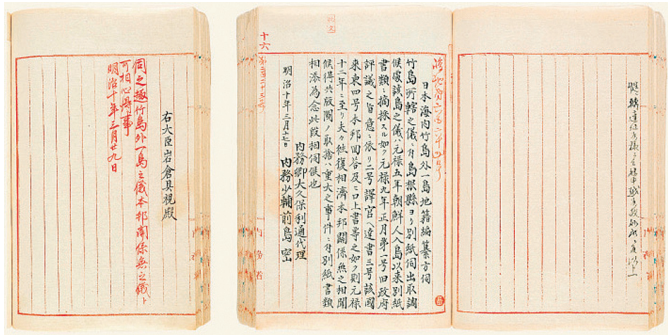 日本海内竹島外一島地籍編纂方伺
竹島所轄之儀ニ付島根縣ヨリ別紙伺出取調
候處該島之儀ハ元禄五年朝鮮人入島以来別紙
書類ニ摘採スル如ク元禄九年正月第一号旧政府
評議之旨意ニ依リ二号譯官ヘ達書三号該國
来柬四号本邦回答及ヒ口上書等之如ク則元禄
十二年ニ至リ夫々往復相濟本邦関係無之相聞
候得共版圖ノ取捨ハ重大之事件ニ付別紙書類
相添為念此段相伺候也
内務卿大久保利通代理
明治十年三月十七日 内務少輔前島密
十六
右大臣岩倉具視殿
伺之趣竹島外一島之儀本邦関係無之儀ト
可相心得事
明治十年三月廿九日